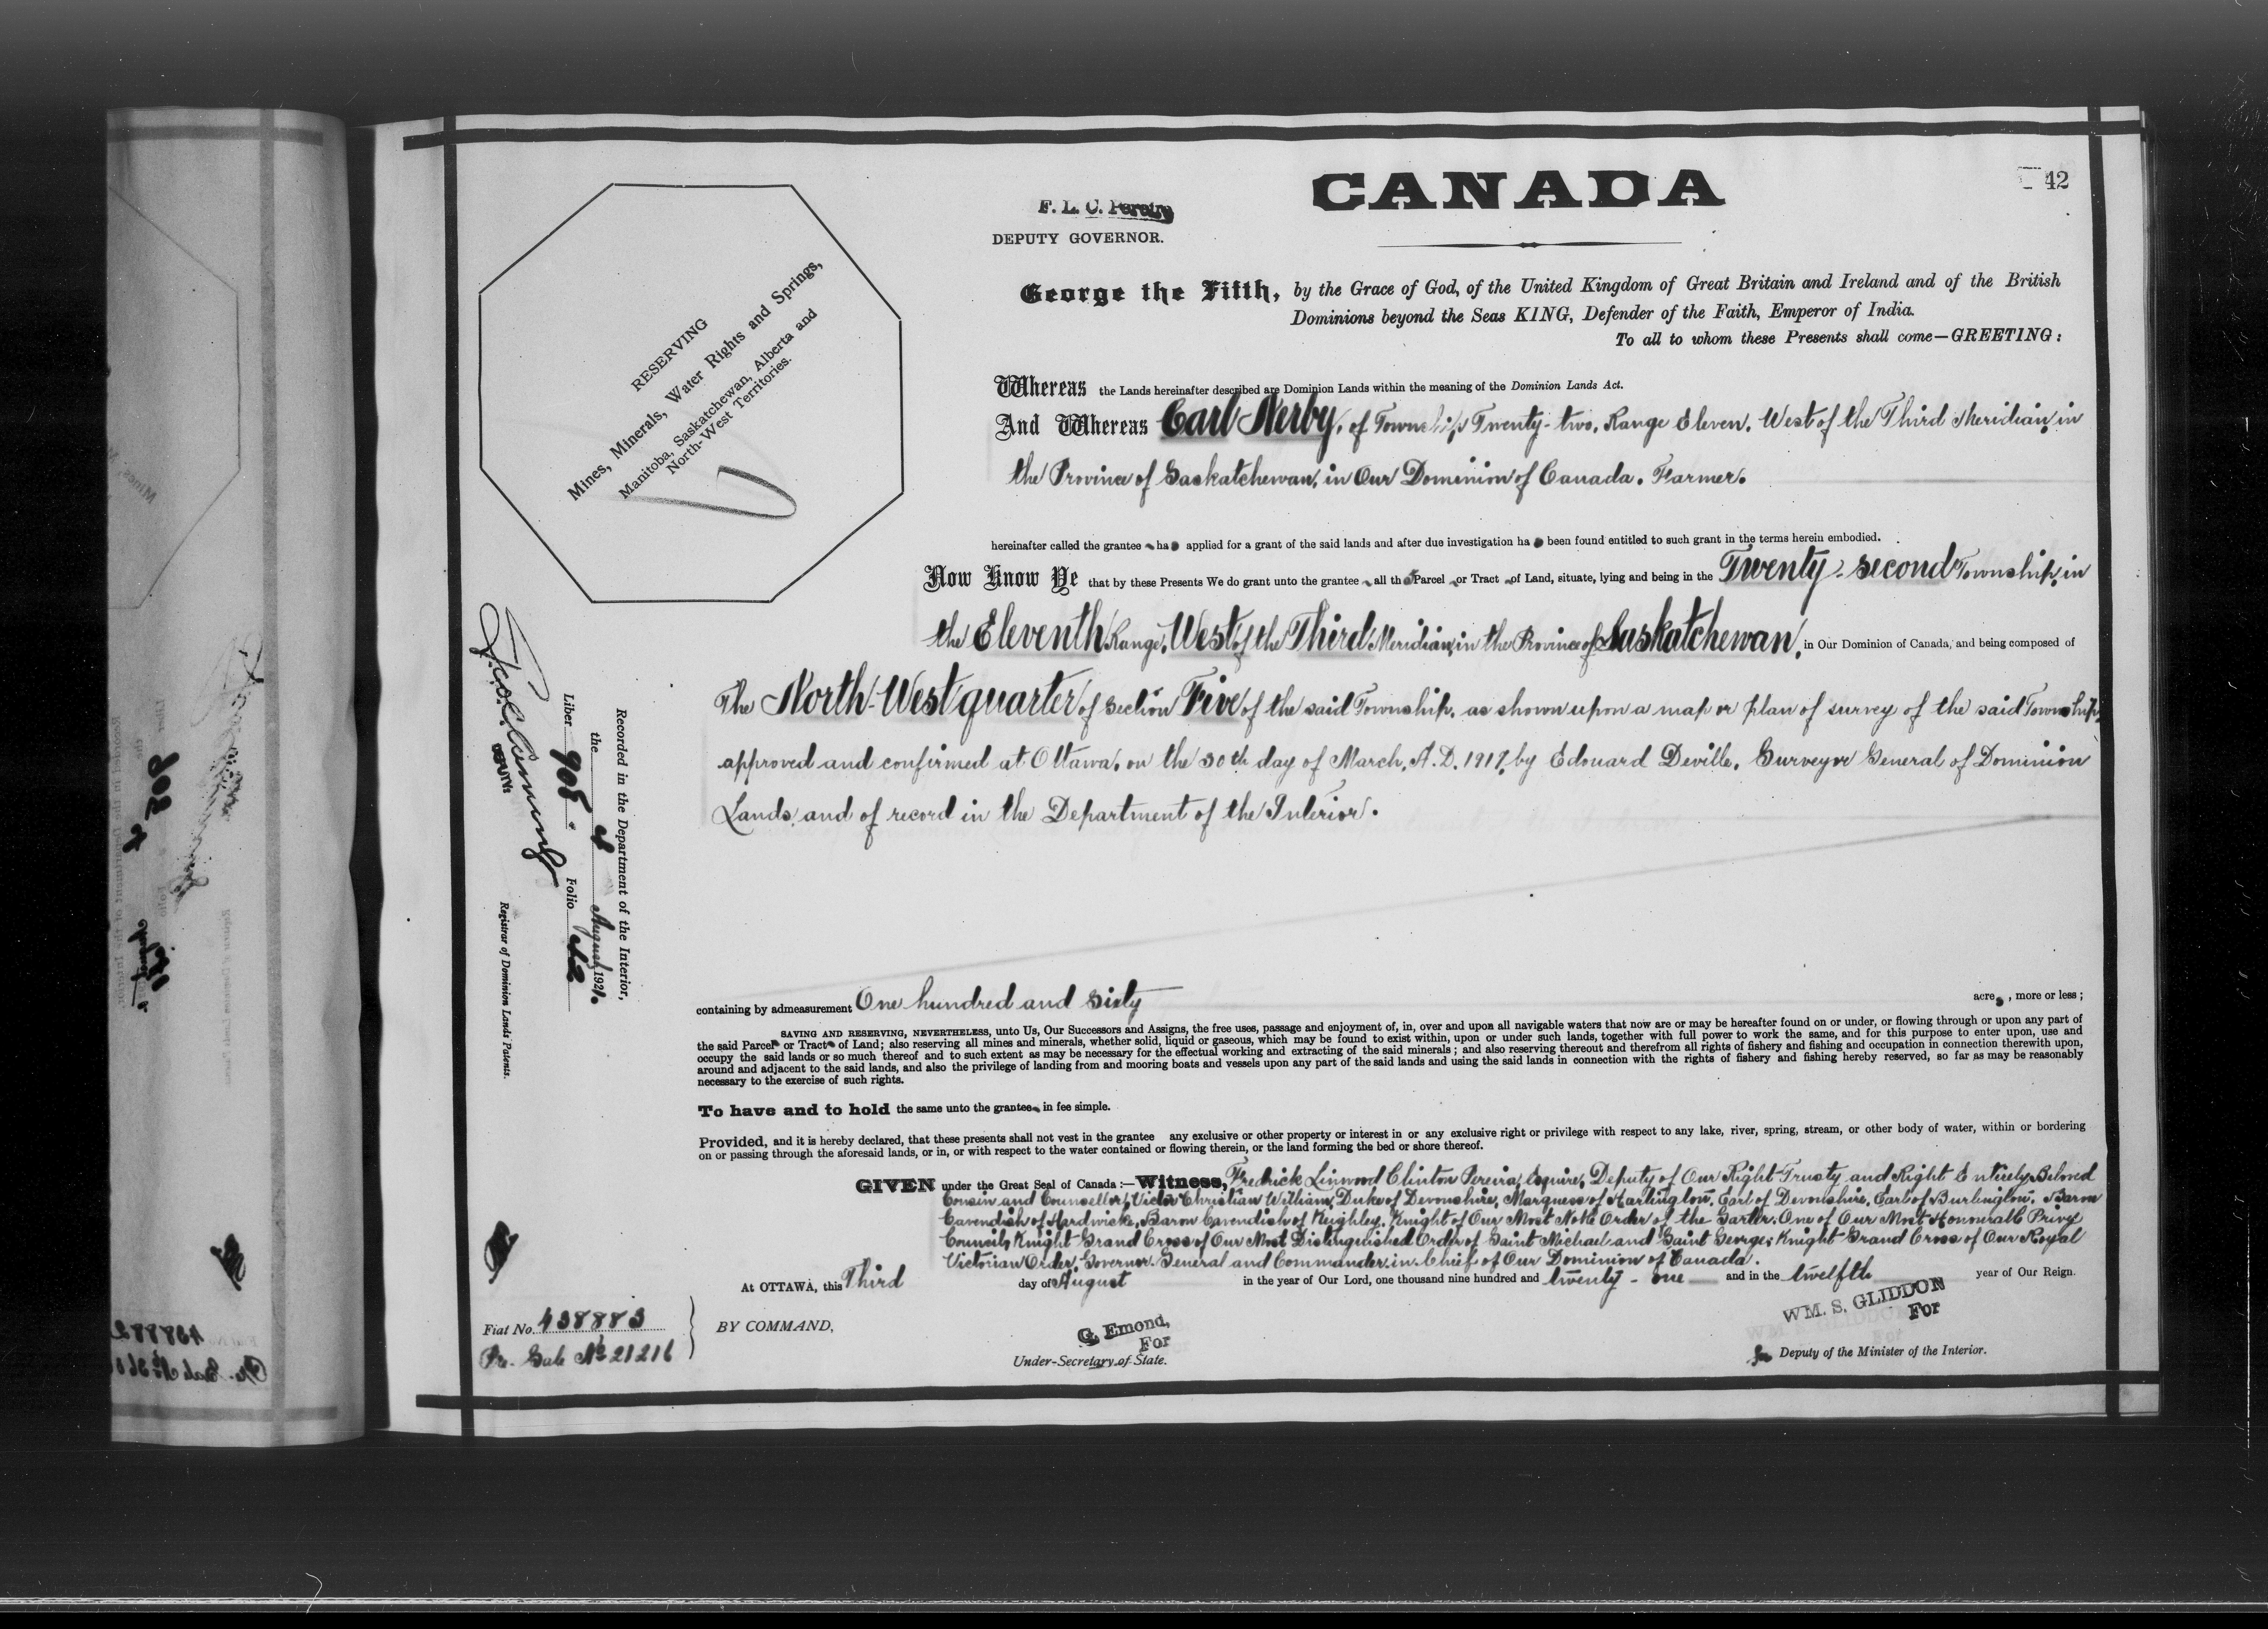 CANADA
42
F. L. C. Pereira
DEPUTY GOVERNOR.
RESERVING
Mines, Minerals, Water Rights and Springs,
Manitoba, Saskatchewan, Alberta and
North-West Territories.
George the Fifth, by the Grace of God, of the United Kingdom of Great Britain and Ireland and of the British
Dominions beyond the Seas KING, Defender of the Faith, Emperor of India.
To all to whom these Presents shall come—GREETING:
Whereas the Lands hereinafter described are Dominion Lands within the meaning of the Dominion Lands Act.
And Whereas Carl Nerby, of Township Twenty-two, Range Eleven, West of the Third Meridian, in
the Province of Saskatchewan, in Our Dominion of Canada. Farmer.
hereinafter called the grantee ha applied for a grant of the said lands and after due investigation ha been found entitled to such grant in the terms herein embodied.
Now Know Ye that by these Presents We do grant unto the grantee all th Parcel or Tract of Land, situate, lying and being in the Twenty-second Township, in
the Eleventh Range, West of the Third Meridian, in the Province of Saskatchewan, in Our Dominion of Canada, and being composed of
The North-West quarter of Section Five of the said Township, as shown upon a map or plan of survey of the said Township,
approved and confirmed at Ottawa, on the 30th day of March, A.D. 1917, by Edouard Deville, Surveyor General of Dominion
Lands, and of record in the Department of the Interior.
containing by admeasurement One hundred and sixty acres, more or less;
SAVING AND RESERVING, NEVERTHELESS, unto Us, Our Successors and Assigns, the free uses, passage and enjoyment of, in, over and upon all navigable waters that now are or may be hereafter found on or under, or flowing through or upon any part of
the said Parcel or Tract of Land; also reserving all mines and minerals, whether solid, liquid or gaseous, which may be found to exist within, upon or under such lands, together with full power to work the same, and for this purpose to enter upon, use and
occupy the said lands or so much thereof and to such extent as may be necessary for the effectual working and extracting of the said minerals; and also reserving thereout and therefrom all rights of fishery and fishing and occupation in connection therewith upon,
around and adjacent to the said lands, and also the privilege of landing from and mooring boats and vessels upon any part of the said lands and using the said lands in connection with the rights of fishery and fishing hereby reserved, so far as may be reasonably
necessary to the exercise of such rights.
To have and to hold the same unto the grantee in fee simple.
Provided, and it is hereby declared, that these presents shall not vest in the grantee any exclusive or other property or interest in or any exclusive right or privilege with respect to any lake, river, spring, stream, or other body of water, within or bordering
on or passing through the aforesaid lands, or in, or with respect to the water contained or flowing therein, or the land forming the bed or shore thereof.
GIVEN under the Great Seal of Canada:—Witness, Fredrick Linwood Clinton Pereira, Esquire, Deputy of Our Right Trusty and Right Entirely Beloved
Cousin and Counsellor, Victor Christian William, Duke of Devonshire, Marquess of Hartington, Earl of Devonshire, Earl of Burlington, Baron
Cavendish of Hardwicke, Baron Cavendish of Keighley, Knight of Our Most Noble Order of the Garter, One of Our Most Honourable Privy
Council, Knight Grand Cross of Our Most Distinguished Order of Saint Michael and Saint George, Knight Grand Cross of Our Royal
Victorian Order, Governor General and Commander in Chief of Our Dominion of Canada.
At OTTAWA, this Third day of August in the year of Our Lord, one thousand nine hundred and twenty-one and in the twelfth year of Our Reign.
BY COMMAND,
G. Emond,
For
Under-Secretary of State.
WM. S. GLIDDON
For
Deputy of the Minister of the Interior.
Recorded in the Department of the Interior,
the 4 August 1921.
Liber 908. Folio 42
DEPUTY
Registrar of Dominion Lands Patents.
Fiat No. 438883
Pr. Sale No 21216